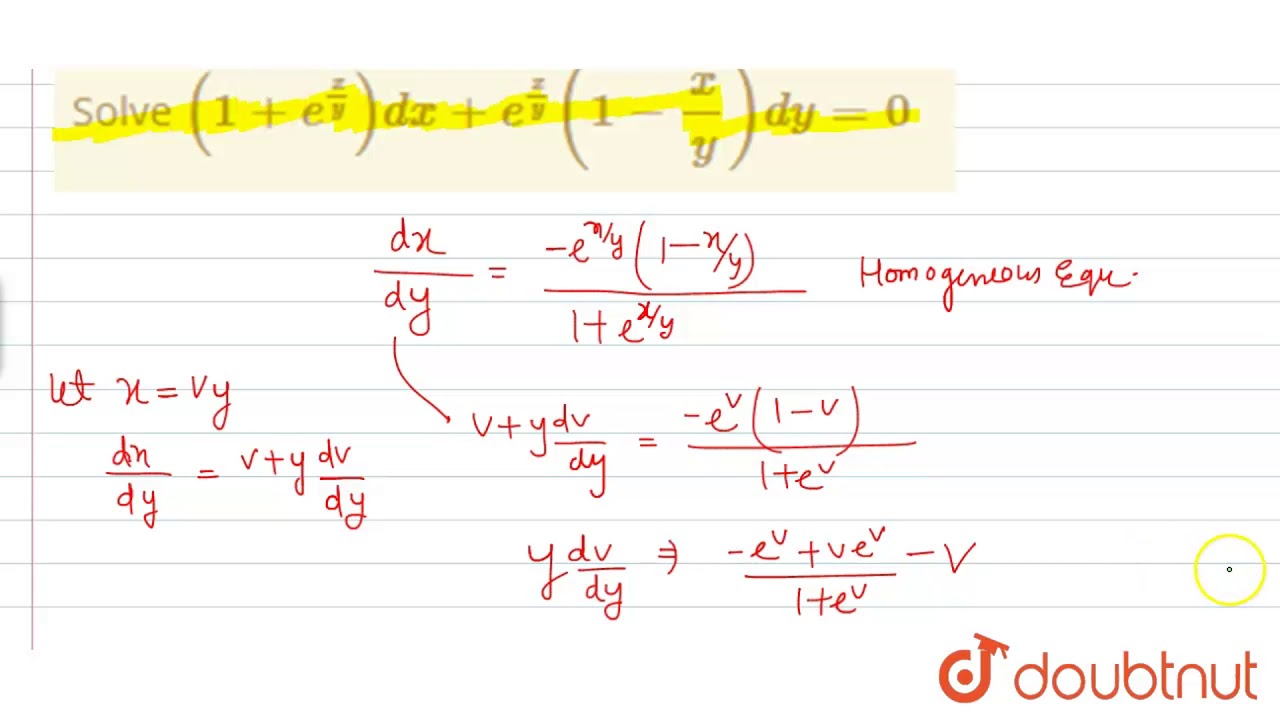 Solve (1 + e^{x/y}) dx + e^{x/y} (1 − x/y) dy = 0
dx/dy = −e^{x/y} (1 − x/y) / 1 + e^{x/y} Homogeneous Equ.
let x = vy
v + y dv/dy = −e^v (1 − v) / 1 + e^v
dx/dy = v + y dv/dy
y dv/dy ⇒ −e^v + ve^v / 1 + e^v − v
doubtnut